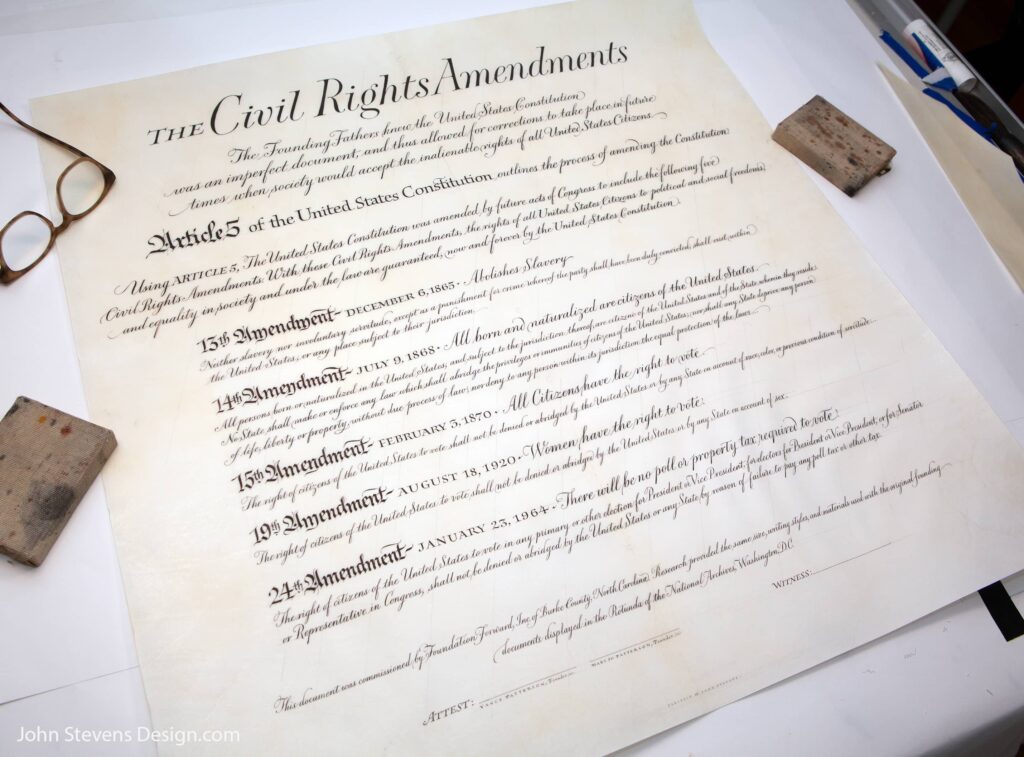 THE Civil Rights Amendments
The Founding Fathers knew the United States Constitution
was an imperfect document, and thus allowed for corrections to take place in future
times when society would accept the inalienable rights of all United States Citizens.
Article 5 of the United States Constitution outlines the process of amending the Constitution.
Using ARTICLE 5, The United States Constitution was amended by future acts of Congress to include the following five
Civil Rights Amendments. With these Civil Rights Amendments, the rights of all United States Citizens to political and social freedoms
and equality in society and under the law are guaranteed, now and forever by the United States Constitution.
13th Amendment – DECEMBER 6, 1865 · Abolishes Slavery
Neither slavery nor involuntary servitude, except as a punishment for crime whereof the party shall have been duly convicted, shall exist within
the United States, or any place subject to their jurisdiction.
14th Amendment – JULY 9, 1868 · All born and naturalized are citizens of the United States.
All persons born or naturalized in the United States, and subject to the jurisdiction thereof, are citizens of the United States and of the State wherein they reside.
No State shall make or enforce any law which shall abridge the privileges or immunities of citizens of the United States; nor shall any State deprive any person
of life, liberty or property, without due process of law; nor deny to any person within its jurisdiction the equal protection of the laws.
15th Amendment – FEBRUARY 3, 1870 · All Citizens have the right to vote.
The right of citizens of the United States to vote shall not be denied or abridged by the United States or by any State on account of race, color, or previous condition of servitude.
19th Amendment – AUGUST 18, 1920 · Women have the right to vote.
The right of citizens of the United States to vote shall not be denied or abridged by the United States or by any State on account of sex.
24th Amendment – JANUARY 23, 1964 · There will be no poll or property tax required to vote.
The right of citizens of the United States to vote in any primary or other election for President or Vice President, for electors for President or Vice President, or for Senator
or Representative in Congress, shall not be denied or abridged by the United States or any State by reason of failure to pay any poll tax or other tax.
This document was commissioned by Foundation Forward, Inc. of Burke County, North Carolina. Research provided the same size, writing styles, and materials used with the original founding
documents displayed in the Rotunda of the National Archives, Washington, DC.
WITNESS:
ATTEST:
VANCE PATTERSON, Founder
MARY JO PATTERSON, Founder
John Stevens Design.com